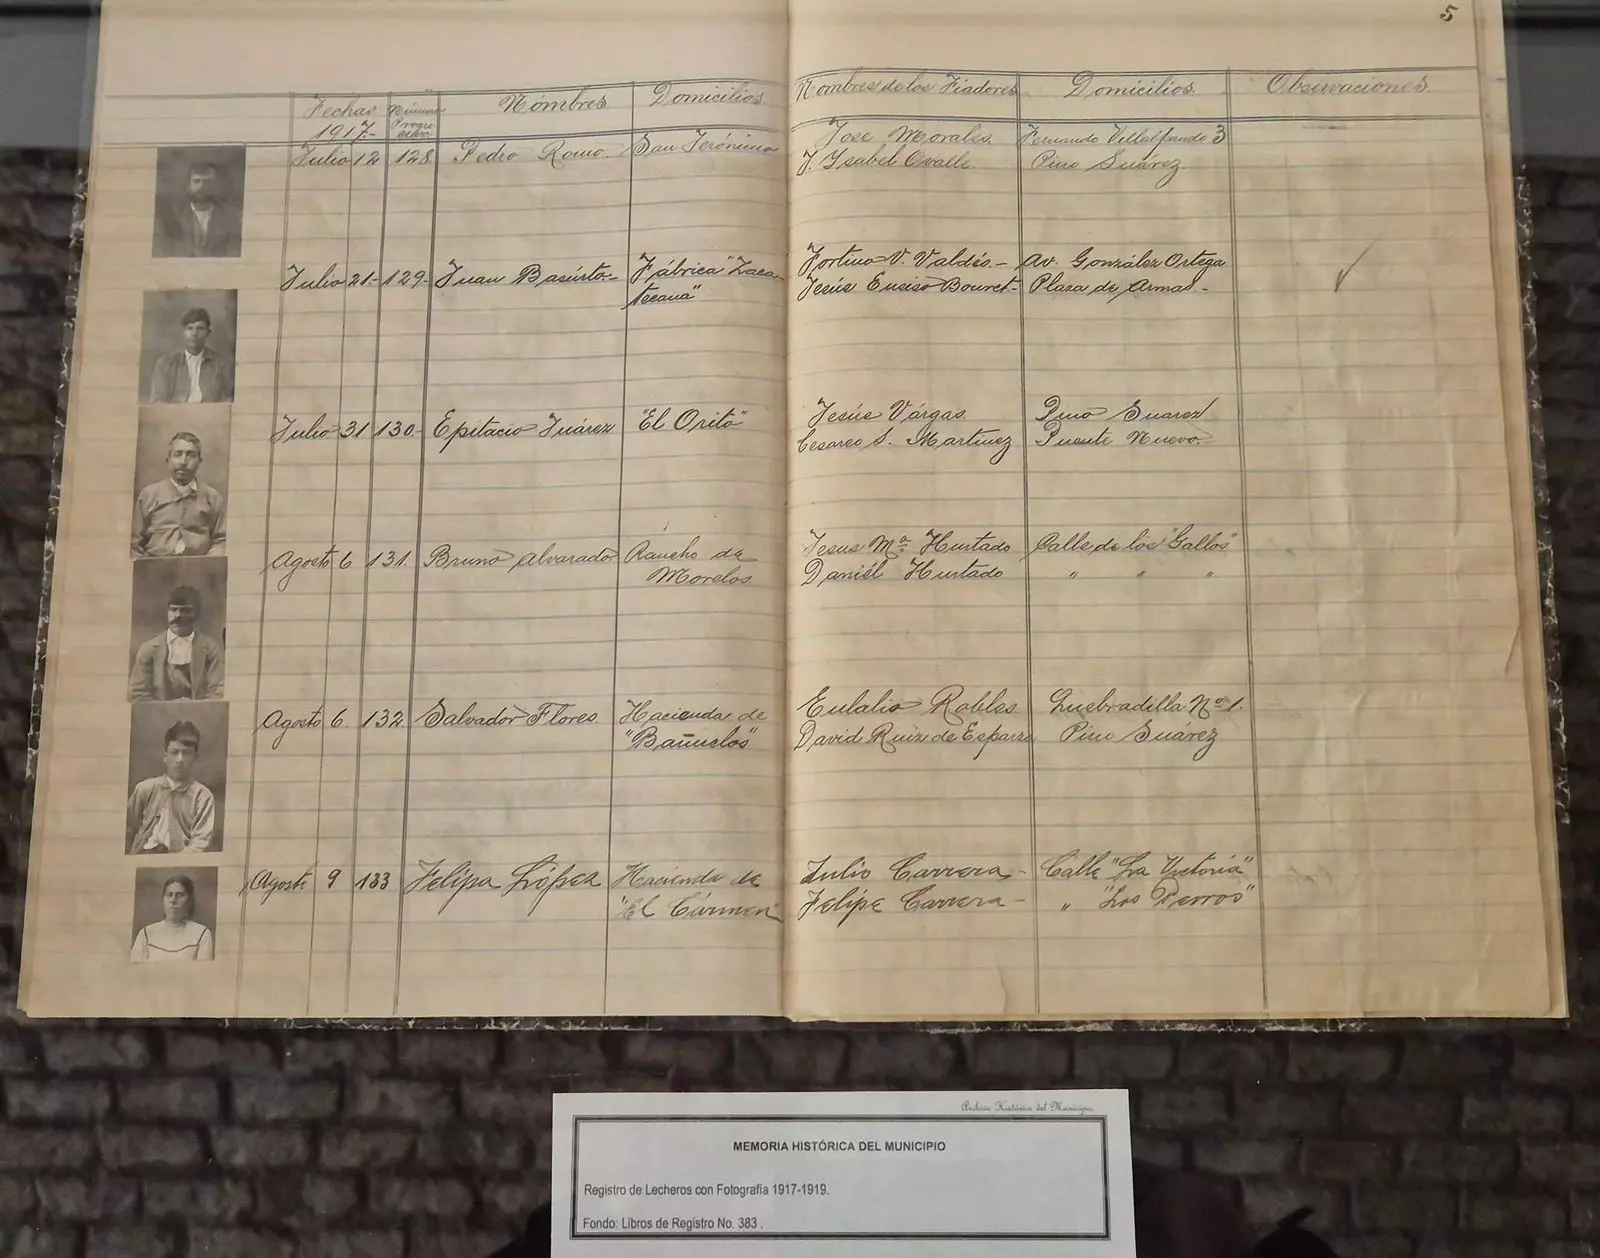 5
Fechas 1917.- Número Progresivo Nómbres Domicilios Nombres de los Fiadores Domicilios. Observaciones.
Julio 12 128. Pedro Romo. San Jerónimo Jose Morales. Fernando Villalpando 3
J. Ysabel Ovalle. Pino Suárez
Julio 21- 129- Juan Basúrto- Fábrica "Zaca- Fortino V. Valdés.- Av. González Ortega
tecana" Jesús Enciso Bouret- Plaza de Armas-
Julio 31 130. Epitacio Juárez "El Orito" Jesús Várgas Pino Suarez
Cesareo S. Martinez Puente Nuevo.
Agosto 6 131. Bruno Alvarado Rancho de Jesus Mª Hurtado Calle de los "Gallos"
Morelos Daniél Hurtado " " "
Agosto 6. 132. Salvador Flores Hacienda de Eulalio Robles Quebradilla Nº 1.
"Bañuelos" David Ruiz de Esparza Pino Suárez
Agosto 9 133 Felipa López Hacienda de Julio Carrera- Calle "La Victoria"
"El Cármen" Felipe Carrera- " "Los Perros"
Archivo Histórico del Municipio
MEMORIA HISTÓRICA DEL MUNICIPIO
Registro de Lecheros con Fotografía 1917-1919.
Fondo: Libros de Registro No. 383 .